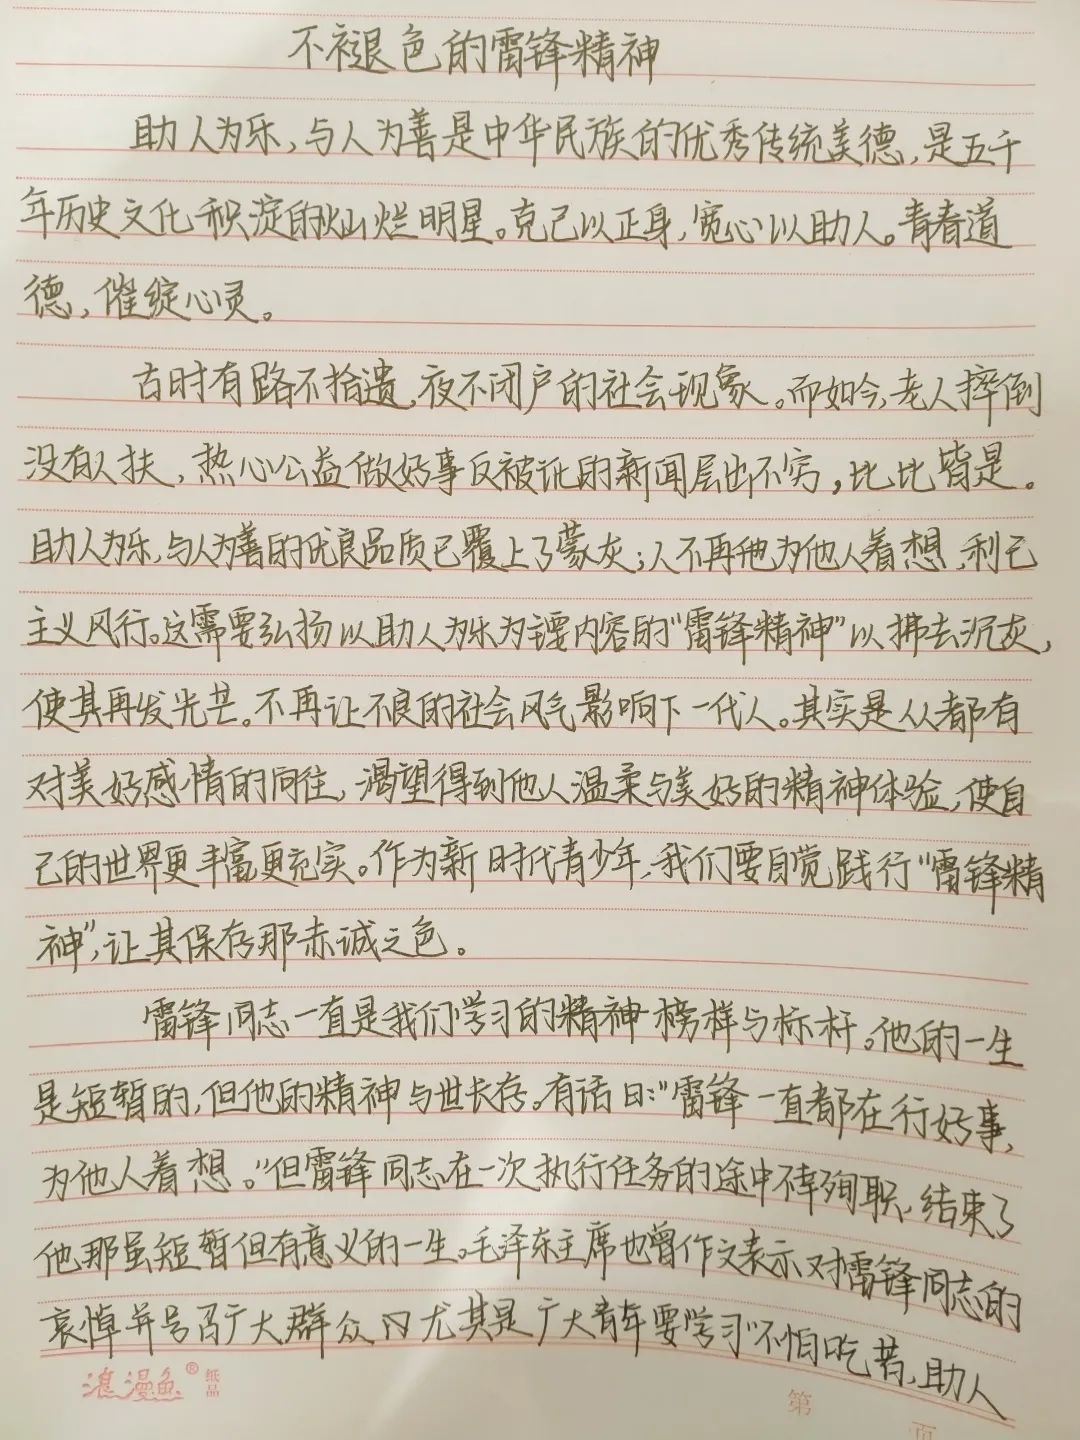 不褪色的雷锋精神
助人为乐,与人为善是中华民族的优秀传统美德,是五千
年历史文化积淀的灿烂明星。克己以正身,宽心以助人。青春道
德,催绽心灵。
古时有路不拾遗,夜不闭户的社会现象。而如今,老人摔倒
没有人扶,热心公益做好事反被讹的新闻层出不穷,比比皆是。
助人为乐,与人为善的优良品质已覆上了蒙灰;人不再他为他人着想,利己
主义风行。这需要弘扬以助人为乐为主要内容的“雷锋精神”以拂去沉灰,
使其再发光芒。不再让不良的社会风气影响下一代人。其实是人都有
对美好感情的向往,渴望得到他人温柔与美好的精神体验,使自
己的世界更丰富更充实。作为新时代青少年,我们要自觉践行“雷锋精
神”,让其保存那赤诚之色。
雷锋同志一直是我们学习的精神榜样与标杆。他的一生
是短暂的,但他的精神与世长存。有话曰:“雷锋一直都在行好事,
为他人着想。”但雷锋同志在一次执行任务的途中不幸殉职,结束了
他那虽短暂但有意义的一生。毛泽东主席也曾作文表示对雷锋同志的
哀悼并号召广大群众尤其是广大青年要学习“不怕吃苦,助人
浪漫鱼® 纸品
第 页